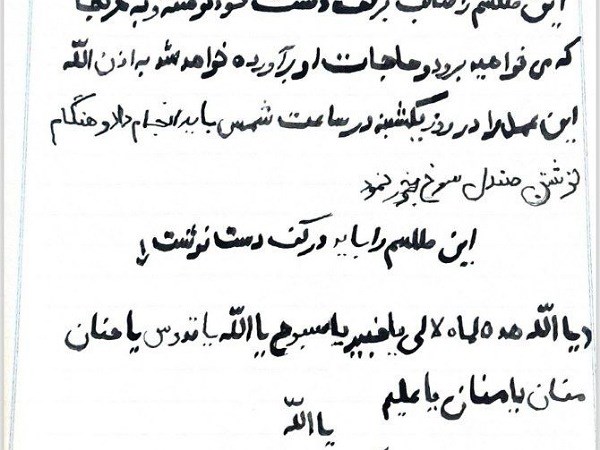 این طلسم را صاحب بر کف دست خود نوشته و به هر کجا
که می خواهید برود و حاجات او برآورده خواهد شد به اذن الله
این عمل را در روز یکشنبه در ساعت شمس باید انجام داد و هنگام
نوشتن صندل سرخ بخور نمود
این طلسم را باید در کف دست نوشت
یا الله یا خبیر یا سبوح یا الله یا قدوس یا حنان
منان یا منان یا علیم
یا الله